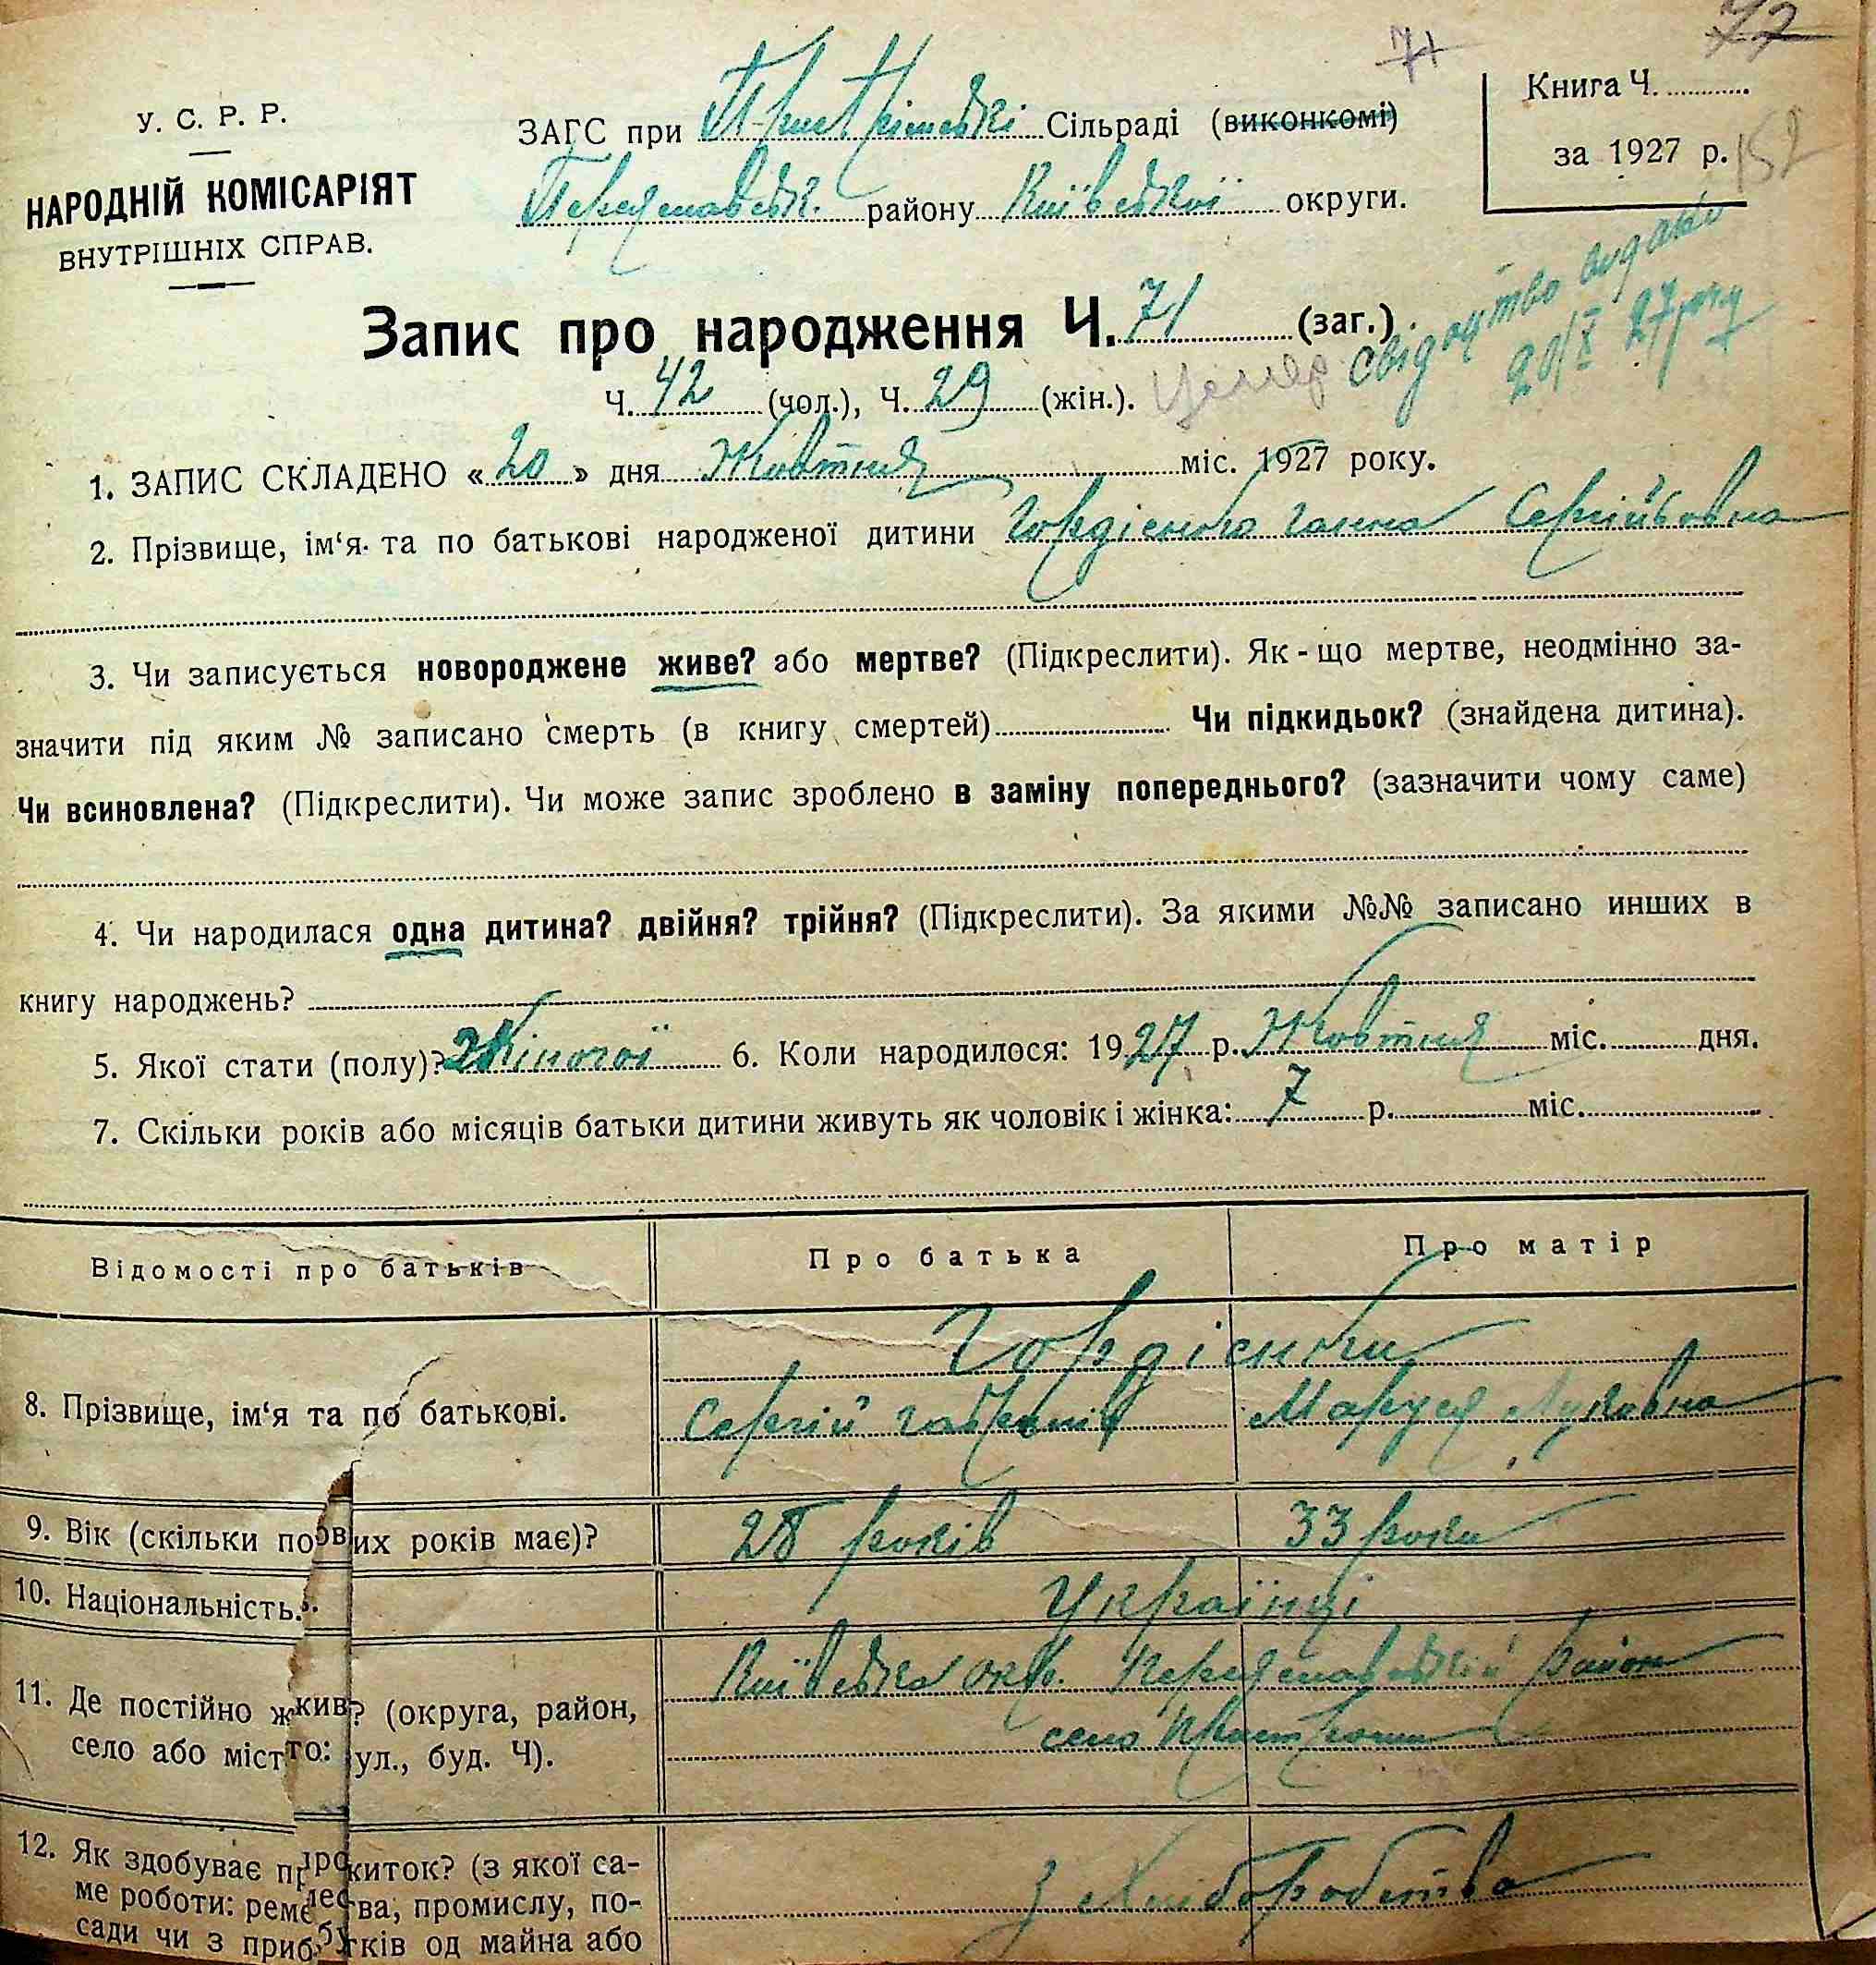 71
72
У. С. Р. Р.
НАРОДНІЙ КОМІСАРІЯТ
ВНУТРІШНІХ СПРАВ.
ЗАГС при Пристрімській Сільраді (виконкомі)
Переяславськ. району Київської округи.
Книга Ч.
за 1927 р.
152
Запис про народження Ч. 71 (заг.)
свидоцтво видано
20/X 27 року
Ч. 42 (чол.), Ч. 29 (жін.).
1. ЗАПИС СКЛАДЕНО «20» дня Жовтня міс. 1927 року.
2. Прізвище, ім‘я та по батькові народженої дитини Гордієнкова Галина Сергійовна
3. Чи записується новороджене живе? або мертве? (Підкреслити). Як-що мертве, неодмінно за-
значити під яким № записано смерть (в книгу смертей) Чи підкидьок? (знайдена дитина).
Чи всиновлена? (Підкреслити). Чи може запис зроблено в заміну попереднього? (зазначити чому саме)
4. Чи народилася одна дитина? двійня? трійня? (Підкреслити). За якими №№ записано инших в
книгу народжень?
5. Якої стати (полу)? Жіночої 6. Коли народилося: 1927 р. Жовтня міс. дня.
7. Скільки років або місяців батьки дитини живуть як чоловік і жінка: 7 р. міс.
Відомості про батьків Про батька Про матір
Гордієнки
8. Прізвище, ім‘я та по батькові. Сергій Гаврилів Маруся Луківна
9. Вік (скільки повних років має)? 28 років 33 роки
10. Національність. Українці
11. Де постійно живе? (округа, район, Київська окр. Переяславській район
село або місто: вул., буд. Ч). село Пристроми
12. Як здобуває прожиток? (з якої са-
ме роботи: ремества, промислу, по- з хліборобства
сади чи з прибутків од майна або